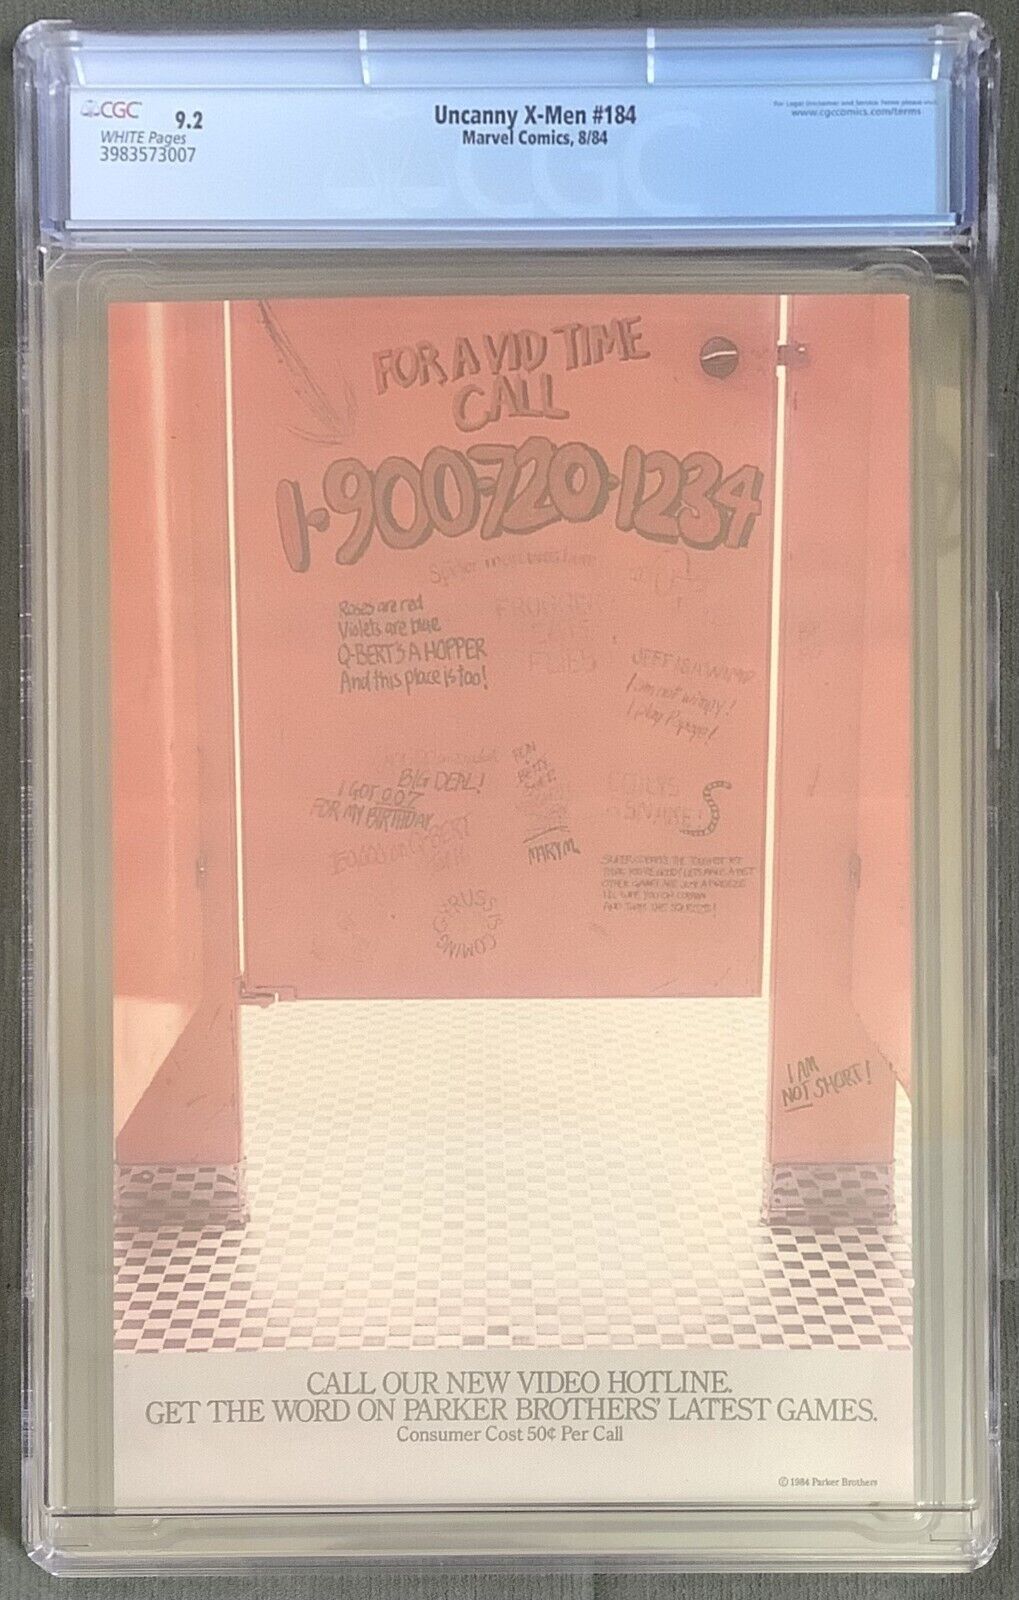 CGC 9.2
WHITE Pages
3983573007
Uncanny X-Men #184
Marvel Comics, 8/84
www.cgccomics.com/terms
FOR A VID TIME
CALL
1-900-720-1234
Spider man was here
Roses are red
Violets are blue
Q-BERT'S A HOPPER
And this place is too!
FROGGER
EATS
FLIES
JEFF IS A WIMP
I am not wimpy!
I play Popeye!
BIG DEAL!
I GOT 007
FOR MY BIRTHDAY
MARY M.
GRUSS IS COMING
I AM
NOT SHORT!
CALL OUR NEW VIDEO HOTLINE.
GET THE WORD ON PARKER BROTHERS' LATEST GAMES.
Consumer Cost 50¢ Per Call
© 1984 Parker Brothers